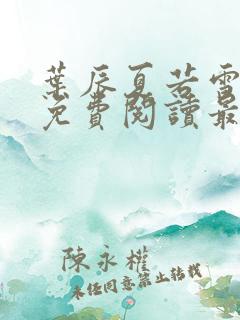 葉辰夏若雪
免費閱讀最
陳永權
未經同意禁止轉載